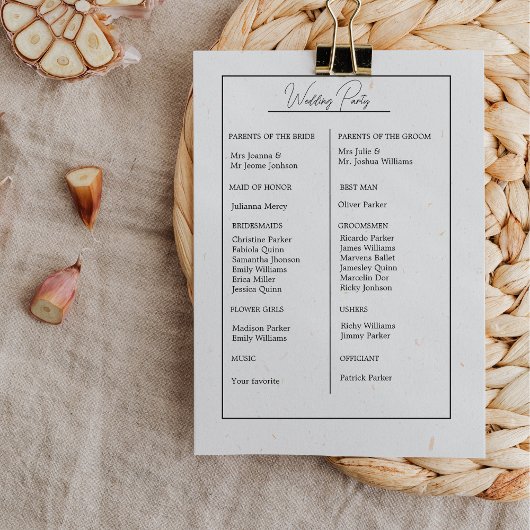 Wedding Party
PARENTS OF THE BRIDE
Mrs Joanna &
Mr Jeome Jonhson
MAID OF HONOR
Julianna Mercy
BRIDESMAIDS
Christine Parker
Fabiola Quinn
Samantha Jhonson
Emily Williams
Erica Miller
Jessica Quinn
FLOWER GIRLS
Madison Parker
Emily Williams
MUSIC
Your favorite
PARENTS OF THE GROOM
Mrs Julie &
Mr. Joshua Williams
BEST MAN
Oliver Parker
GROOMSMEN
Ricardo Parker
James Williams
Marvens Ballet
Jamesley Quinn
Marcelin Dor
Ricky Jonhson
USHERS
Richy Williams
Jimmy Parker
OFFICIANT
Patrick Parker